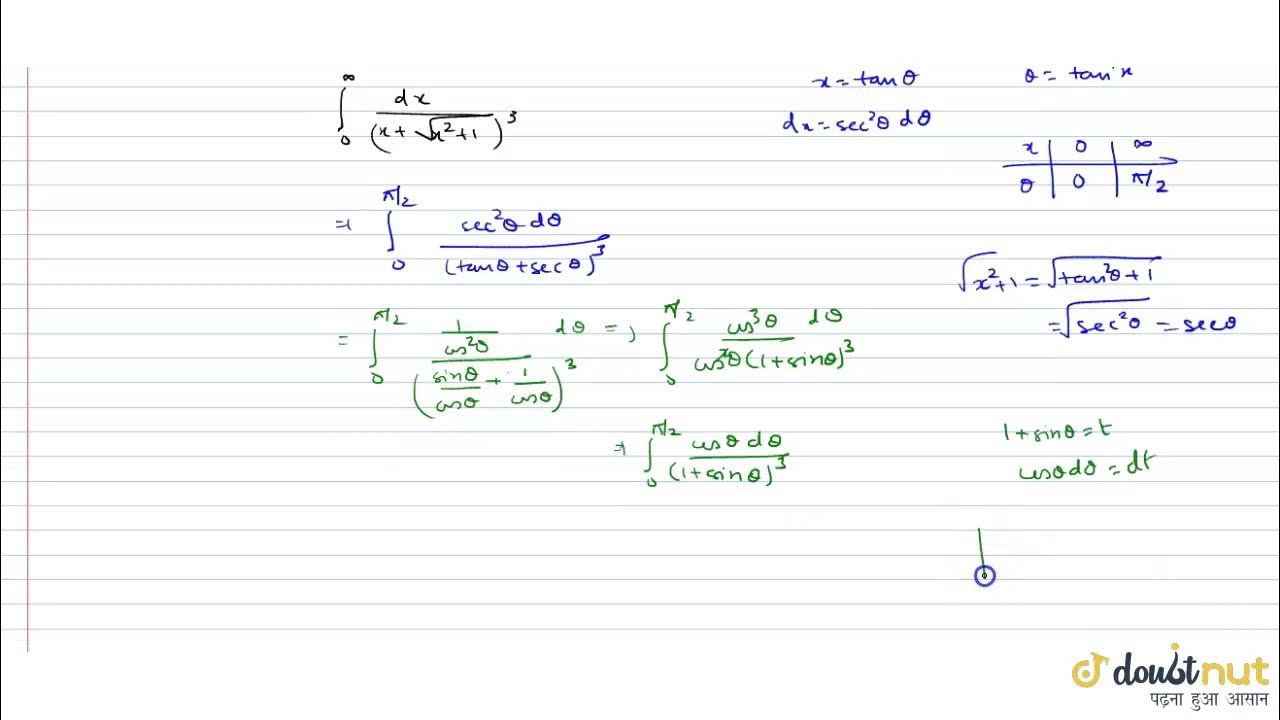 ∫₀^∞ dx / (x + √(x²+1))³
x = tanθ
θ = tan⁻¹x
dx = sec²θ dθ
x | 0 | ∞
θ | 0 | π/2
⇒ ∫₀^(π/2) sec²θ dθ / (tanθ + secθ)³
√(x²+1) = √(tan²θ + 1)
= √(sec²θ) = secθ
= ∫₀^(π/2) (1/cos²θ) / (sinθ/cosθ + 1/cosθ)³ dθ ⇒ ∫₀^(π/2) cos³θ dθ / cos²θ(1+sinθ)³
⇒ ∫₀^(π/2) cosθ dθ / (1+sinθ)³
1 + sinθ = t
cosθ dθ = dt
doubtnut
पढ़ना हुआ आसान